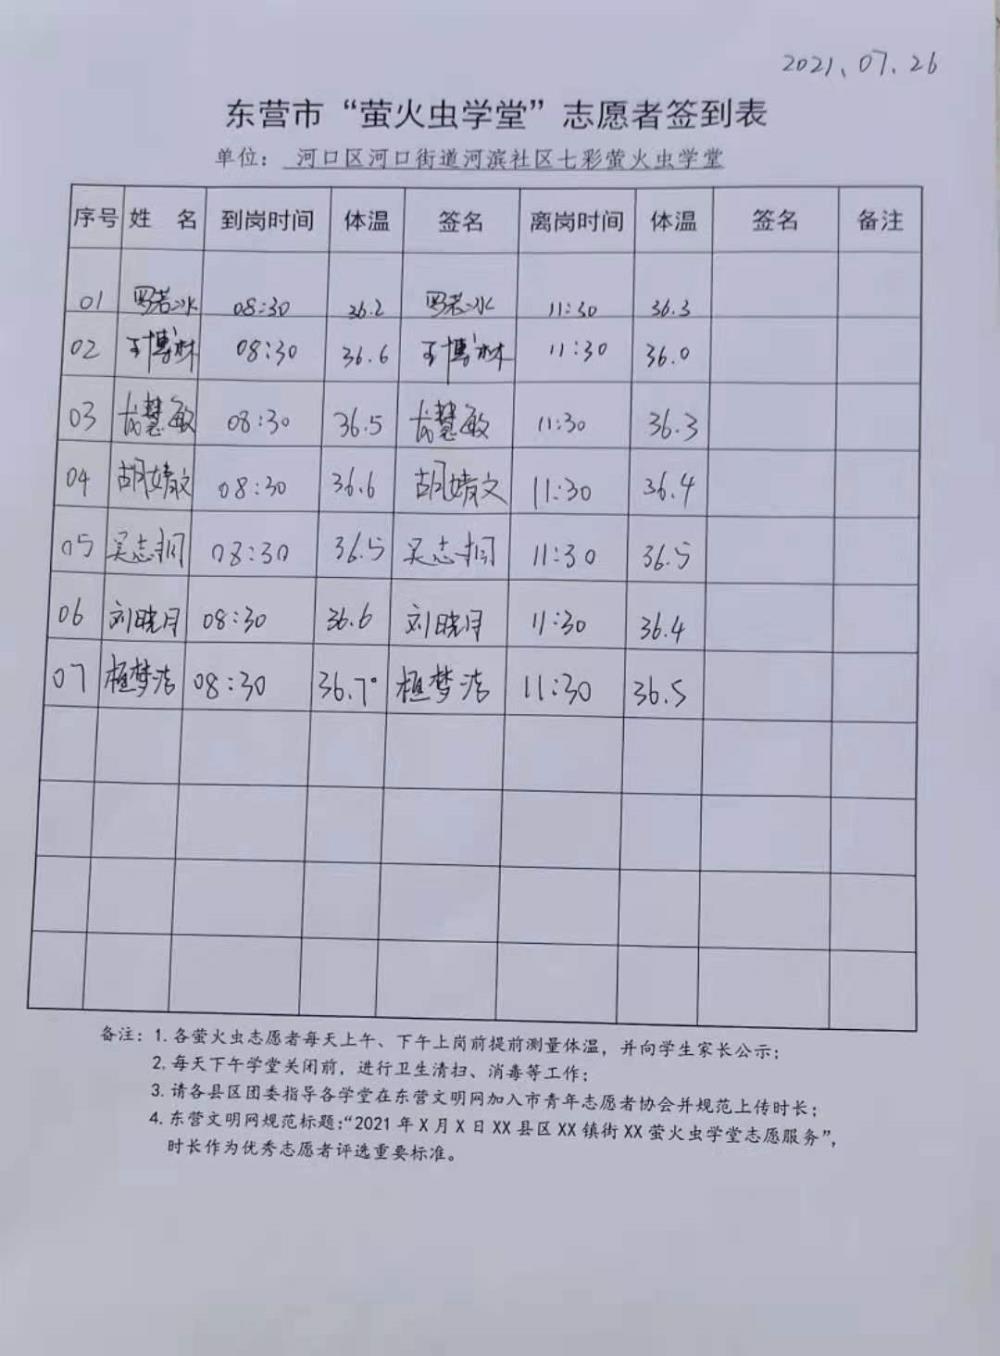 2021.07.26
东营市“萤火虫学堂”志愿者签到表
单位： 河口区河口街道河滨社区七彩萤火虫学堂
序号 姓 名 到岗时间 体温 签名 离岗时间 体温 签名 备注
01 罗若冰 08:30 36.2 罗若冰 11:30 36.3
02 王博林 08:30 36.6 王博林 11:30 36.0
03 慧敏 08:30 36.5 慧敏 11:30 36.3
04 胡婧文 08:30 36.6 胡婧文 11:30 36.4
05 吴志 08:30 36.5 吴志 11:30 36.5
06 刘晓月 08:30 36.6 刘晓月 11:30 36.4
07 梦洁 08:30 36.7° 梦洁 11:30 36.5
备注：1. 各萤火虫志愿者每天上午、下午上岗前提前测量体温，并向学生家长公示；
2. 每天下午学堂关闭前，进行卫生清扫、消毒等工作；
3. 请各县区团委指导各学堂在东营文明网加入市青年志愿者协会并规范上传时长；
4. 东营文明网规范标题：“2021 年 X 月 X 日 XX 县区 XX 镇街 XX 萤火虫学堂志愿服务”，
时长作为优秀志愿者评选重要标准。